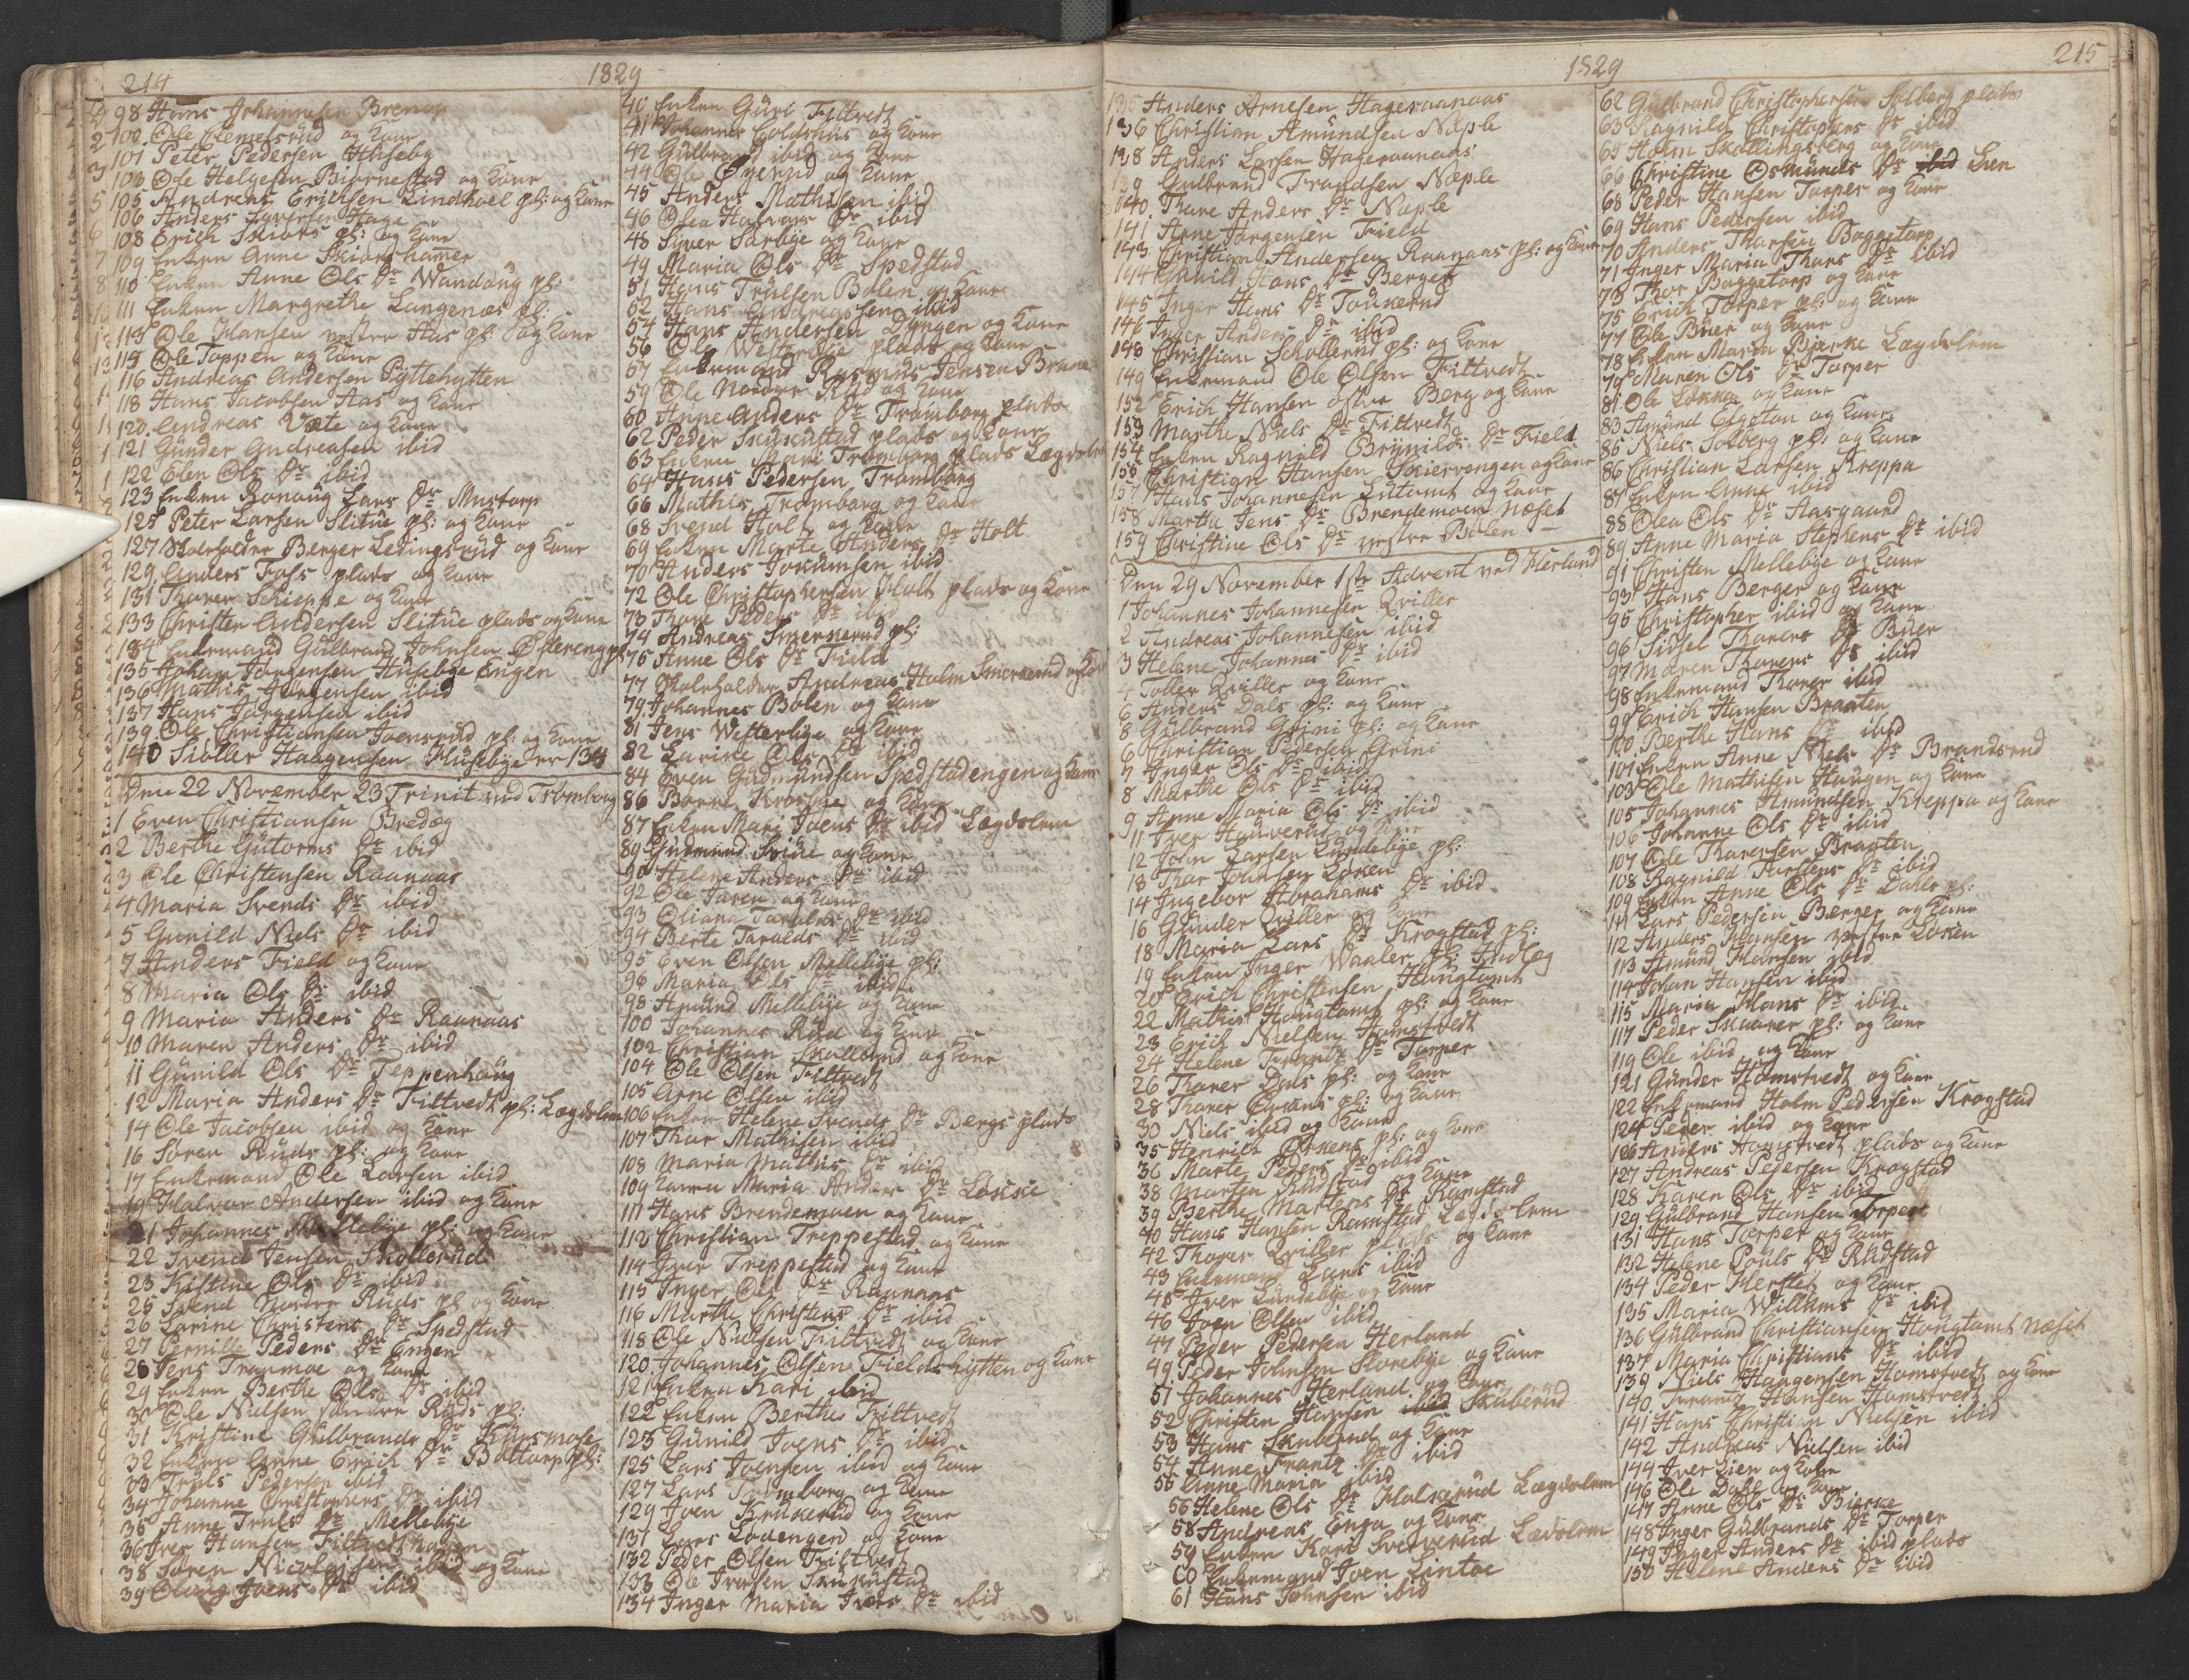 214
1829
98 Hans Johannesen Brenen
100 Ole Clemetsrud og Kone
101 Peter Pedersen Huseby
103 Ole Helgesen Biørnestad og Kone
105 Andreas Erichsen Lindhoel pl: og Kone
106 Anders Syversen Hage
108 Erich Skiørs pl: og Kone
109 Enken Anne Skiørshamer
110 Enken Anne Ols Dr Wandaug pl:
111 Enken Margrethe Langenæs pl:
113 Ole Hansen vestre Aas pl: og Kone
115 Ole Toppen og Kone
116 Andreas Andersen Pyttehytten
118 Hans Jacobsen Aas og Kone
120 Andreas Væte og Kone
121 Günder Andreasen ibid
122 Elen Ols Dr ibid
123 Enken Ronaug Lars Dr Mustorp
125 Peter Larsen Slitüe pl: og Kone
127 Skoleholder Berger Ledingsrüd og Kone
129 Anders Foss plads og Kone
131 Thorer Schieppe og Kone
133 Christen Andersen Slitüe plads og Kone
134 Enkemand Gülbrand Johnsen Østereng pl
135 Johan Jørgensen Hüsebye Engen
136 Mathis Jørgensen ibid
137 Hans Jørgensen ibid
139 Ole Christiansen Joensrud pl: og Kone
140 Siøller Haagensen Hüsebye
Den 22 November 23 Trinit ved Trømborg
1 Even Christiansen Bredæg
2 Berthe Gütorms Dr ibid
3 Ole Christensen Raanaas
4 Maria Svends Dr ibid
5 Gunild Niels Dr ibid
7 Anders Field og Kone
8 Maria Ols Dr ibid
9 Maria Anders Dr Raanaas
10 Maren Anders Dr ibid
11 Günild Ols Dr Teppenhaüg
12 Maria Anders Dr Filtvedt pl: Lægdslem
14 Ole Jacobsen ibid og Kone
16 Søren Rüds pl: og Kone
17 Enkemand Ole Larsen ibid
19 Halvor Andersen ibid og Kone
21 Johannes Mellebye pl: og Kone
22 Svend Jensen Skollerüd
23 Kistine Ols Dr ibid
25 Svend Nordre Rüds pl og Kone
26 Larine Christens Dr Spedstad
27 Pernille Peders Dr Engen
28 Jens Tranmoe og Kone
29 Enken Berthe Ols Dr ibid
30 Ole Nielsen søndre Rüds pl:
31 Kristine Gülbrands Dr
32 Enken Anne Erich Dr Bøttorp pl:
33 Truls Pedersen ibid
34 Johanne Christophers Dr ibid
35 Anne Truls Dr Mellebye
36 Iver Hansen Filtvedthagen
38 Søren Nicolaisen ibid og Kone
39 Olaug Joens Dr ibid
40 Enken Güri Filtvedt
41 Johannes Coldshus og Kone
42 Gülbrand ibid og Kone
44 Ole Øyerud og Kone
45 Anders Mathisen ibid
46 Olea Halvors Dr ibid
48 Syver Sarbye og Kone
49 Maria Ols Dr Spedstad
51 Hans Trülsen Bolen og Kone
52 Hans Andreassen ibid
54 Hans Andersen Dyngen og Kone
56 Ole Westerbye plads og Kone
57 Enkemand Rasmus Jensen
59 Ole Nordre Rüd og Kone
60 Anne Anders Dr Trømborg plads
62 Peder Skükustad plads og Kone
63 Enken Mari Trømborg plads Lægdslem
64 Hans Pedersen Trømborg
66 Mathis Trømborg og Kone
68 Svend Holt og Kone
69 Enken Marte Anders Dr Holt
70 Anders Jokumsen ibid
72 Ole Christophersen Holt plads og Kone
73 Thore Peders Dr ibid
74 Andreas Smerkerud pl:
75 Anne Ols Dr Field
77 Skoleholder Andreas Holm Smerkerud og Kone
79 Johannes Bolen og Kone
81 Jens Westerbye og Kone
82 Larine Ols Dr ibid
84 Even Gudmundsen Spedstadengen og Kone
86 Børre Krosbye og Kone
87 Enken Mari Joens Dr ibid Lægdslem
89 Gudmund og Kone
90 Helene Anders Dr ibid
92 Ole Jaren og Kone
93 Oliana Taralds Dr ibid
94 Berte Taralds Dr ibid
95 Even Olsen Mellebye pl:
96 Maria Ols Dr ibid
98 Amund Mellebye og Kone
100 Johannes Rüd og Kone
102 Christian Skollerud og Kone
104 Ole Olsen Filtvedt
105 Arne Olsen ibid
106 Enken Helene Svends Dr Bergs plads
107 Thor Mathisen ibid
108 Maria Mathis Dr ibid
109 Karen Maria Anders Dr
111 Hans Brendemoen og Kone
112 Christian Treppestad og Kone
114 Iver Treppestad og Kone
115 Inger Ols Dr Raanaas
116 Marthe Christens Dr ibid
118 Ole Nielsen Filtvedt og Kone
120 Johannes Olsen Fieldshytten og Kone
121 Enken Kari ibid
122 Enken Berthe Filtvedt
123 Günild Joens Dr ibid
125 Lars Joensen ibid og Kone
127 Lars Trømborg og Kone
129 Joen Krükerüd og Kone
131 Lars Lødengen og Kone
132 Peder Olsen Filtvedt
133 Ole Iversen Skükustad
134 Inger Maria Ivers Dr ibid
1829
215
135 Anders Arnesen Hageraanaas
136 Christian Amündsen Næple
138 Anders Larsen Hageraanaas
139 Gulbrand Frandsen Næple
140 Thore Anders Dr Næple
141 Arne Jørgensen Field
143 Christian Andersen Raanaas pl: og Kone
144 Gunild Hans Dr Berget
145 Inger Hans Dr
146 Inger Anders Dr ibid
148 Christian Schollerud pl: og Kone
149 Enkemand Ole Olsen Filtvedt
152 Erich Hansen østre Berg og Kone
153 Marthe Niels Dr Filtvedt
154 Enken Ragnild Brynilds Dr Field
155 Christian Hansen Skiersvengen og Kone
157 Hans Johannesen Lütomt og Kone
158 Marthe Jens Dr Brendemoen Næset
159 Christine Ols Dr vestre Bolen
Den 29 November 1ste Advent ved Herland
1 Johannes Johannesen Qviller
2 Andreas Johannesen ibid
3 Helene Johannes Dr ibid
4 Toller Qviller og Kone
6 Anders Dals pl: og Kone
8 Gülbrand Grini pl: og Kone
6 Christian Pedersen Grini
7 Inger Ols Dr ibid
8 Marthe Ols Dr ibid
9 Anne Maria Ols Dr ibid
11 Iver og Kone
12 John Larsen Lundebye pl:
13 Thor Johnsen Løken
14 Ingebor Abrahams Dr ibid
16 Günder Qviller og Kone
18 Maria Lars Dr Krogstad pl:
19 Enken Inger Waaler pl: Indlæg
20 Erich Christensen Haugtomt
22 Mathis Haugtomt pl: og Kone
23 Erich Nielsen Hamstvedt
24 Helene Dr Torper
26 Thorer Dals pl: og Kone
28 Thorer pl: og Kone
30 Niels ibid og Kone
35 Henrich pl: og Kone
36 Marte Peders Dr ibid
38 Morten Rüdstad og Kone
39 Berthe Mortens Dr Ramstad
40 Hans Hansen Ramstad Lægdslem
42 Thorer Qviller plads og Kone
43 Enkemand Lars ibid
45 Iver Lundebye og Kone
46 Joen Olsen ibid
47 Peder Pedersen Herland
49 Peder Johnsen Slorebye og Kone
51 Johannes Herland og Kone
52 Christen Hansen ibid Skuberüd
53 Hans Skuberud og Kone
54 Anne Frantz Dr ibid
55 Anne Maria ibid
56 Helene Ols Dr Lægdslem
58 Andreas Enga og Kone
59 Enken Kari Sververüd Lædslem
60 Enkemand Joen Lintoe
61 Hans Johnsen ibid
62 Gülbrand Christophersen Solberg plads
63 Ragnild Christophers Dr ibid
65 Holm Skøllingsberg og Kone
66 Christine Osmunds Dr ibid Lien
68 Peder Hansen Torper og Kone
69 Hans Pedersen ibid
70 Anders Thorsen Baggetorp
71 Inger Maria Thors Dr ibid
73 Thor Baggetorp og Kone
75 Erich Torper pl: og Kone
77 Ole Büer og Kone
78 Enken Maren Bjerke Lægdslem
79 Maren Ols Dr Torper
81 Ole Løkka og Kone
83 Amünd Elgetun og Kone
85 Niels Solberg pl: og Kone
86 Christian Larsen Kreppa
87 Enken Anne ibid
88 Olea Ols Dr Aasgaard
89 Anne Maria Stephens Dr ibid
91 Christen Mellebye og Kone
93 Hans Berger og Kone
95 Christopher ibid og Kone
96 Sidsel Thorers Dr Büer
97 Maren Thorers Dr ibid
98 Enkemand Thorer ibid
99 Erich Hansen Braaten
100 Berthe Hans Dr ibid
101 Enken Anne Niels Dr Brandsrud
103 Ole Mathisen Haugen og Kone
105 Johannes Amündsen Kreppa og Kone
106 Johanne Ols Dr ibid
107 Ole Thoresen Braaten
108 Ragnild Torstens Dr ibid
109 Enken Anne Ols Dr Dahls pl:
111 Lars Pedersen Berger og Kone
112 Anders Hansen vestre Løken
113 Amünd Hansen ibid
114 Johan Hansen ibid
115 Maria Hans Dr ibid
117 Peder Skaarer pl: og Kone
119 Ole ibid og Kone
121 Günder Hamstvedt og Kone
122 Enkemand Holm Pedersen Krogstad
124 Peder ibid og Kone
126 Anders Hamstvedt plads og Kone
127 Andreas Pedersen Krogstad
128 Karen Ols Dr ibid
129 Gülbrand Hansen Torper
131 Hans Torper og Kone
132 Helene Pouls Dr Rüdstad
134 Peder Herslet og Kone
135 Maria Willums Dr ibid
136 Gülbrand Christiansen Hougtomt Næset
137 Maria Christians Dr ibid
139 Niels Haagensen Hamstvedt og Kone
140 Frantz Hansen Hamstvedt
141 Hans Christian Nielsen ibid
142 Andreas Nielsen ibid
144 Iver Lien og Kone
146 Ole Dahl og Kone
147 Anne Ols Dr Bierke
148 Inger Gülbrands Dr Torper
149 Inger Anders Dr ibid plads
150 Helene Anders Dr ibid